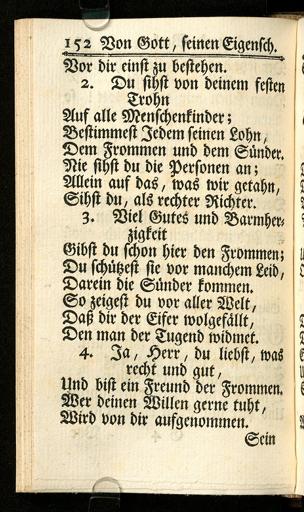 152 Von Gott, seinen Eigensch.
Vor dir einst zu bestehen.
2. Du sihst von deinem festen
Trohn
Auf alle Menschenkinder;
Bestimmest Jedem seinen Lohn,
Dem Frommen und dem Sünder.
Nie sihst du die Personen an;
Allein auf das, was wir getahn,
Sihst du, als rechter Richter.
3. Viel Gutes und Barmher-
zigkeit
Gibst du schon hier den Frommen;
Du schützest sie vor manchem Leid,
Darein die Sünder kommen.
So zeigest du vor aller Welt,
Daß dir der Eifer wolgefällt,
Den man der Tugend widmet.
4. Ja, Herr, du liebst, was
recht und gut,
Und bist ein Freund der Frommen.
Wer deinen Willen gerne tuht,
Wird von dir aufgenommen.
Sein